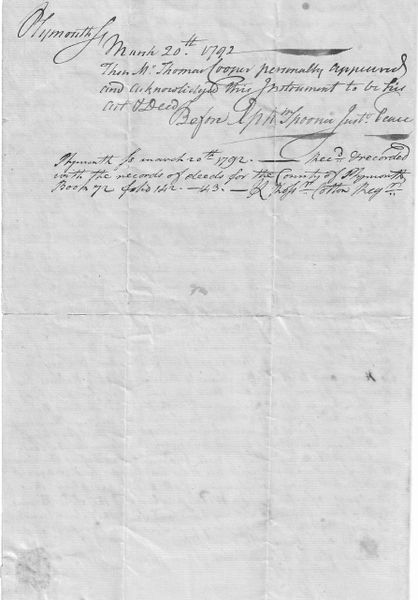 Plymouth Ss
March 20th. 1792
Then Mr Thomas Cooper personally appeared
and Acknowlidged this Instrument to be his
Act & Deed
Before Ephm Spooner Just. Peace
Plymouth Ss march 20th 1792. — Recd & recorded
with the records of deeds for the County of Plymouth
Book 72 folio 142. — 43. — Rossr Cotton Regr.